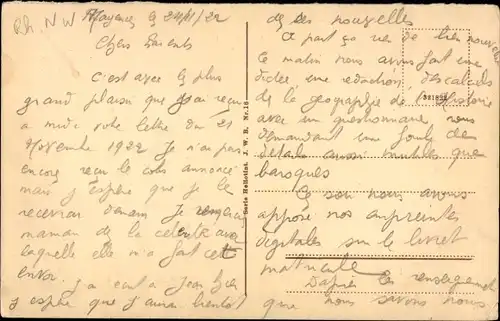 Rh. N W
Mayence le 24/11/22
Chers Parents
C'est avec le plus
grand plaisir que j'ai reçu
à midi votre lettre du 21
Novembre 1922 Je n'ai pas
encore reçu le colis annoncé
mais j'espère que je le
recevrai demain Je remercie
maman de la célérité avec
laquelle elle m'a fait cet
envoi
j'ai écrit à
j'espère que j'aurai bientôt
Serie Heliotint. J. W. B. Nr. 18
de ses nouvelles
A part ça rien de bien nouveau
Ce matin nous avons fait une
dictée une rédaction, des calculs
de la géographie de l'histoire
avec un questionnaire nous
demandant une foule de
détails aussi inutiles que
baroques
Ce soir nous avons
apposé nos empreintes
digitales sur le livret
matricule
D'après les renseignements
que nous savons nous